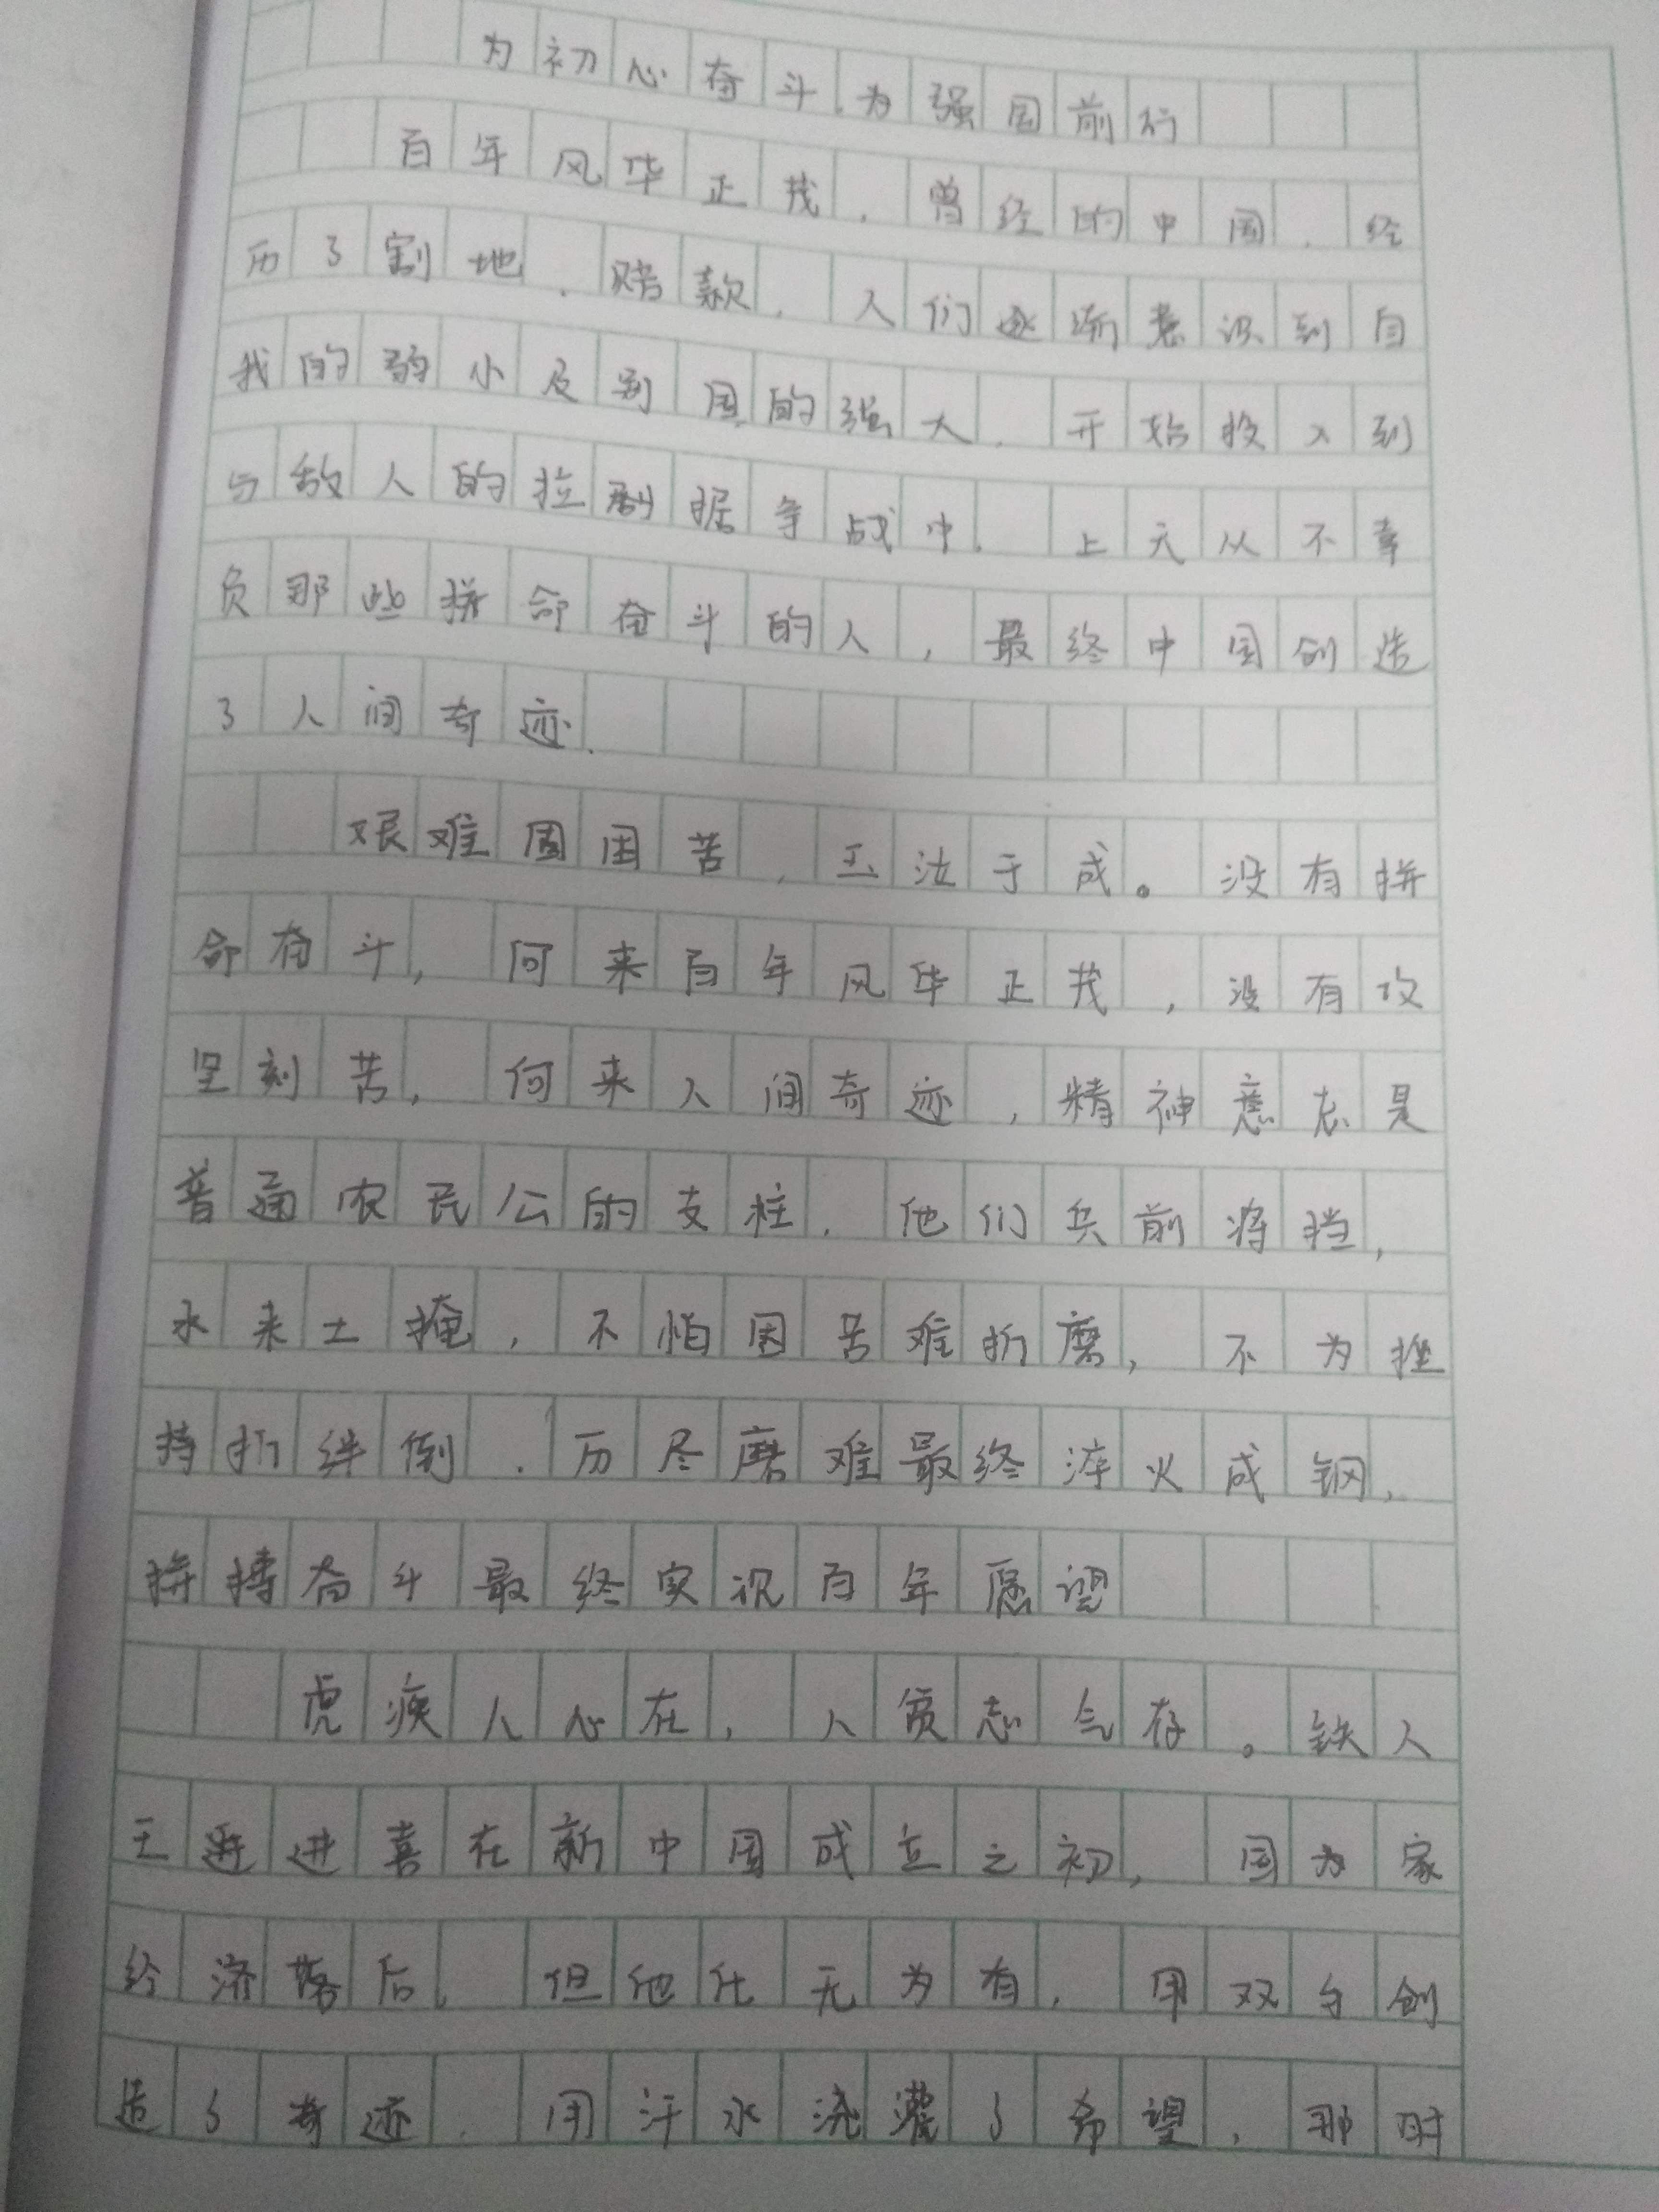 为初心奋斗，为强国前行
百年风华正茂，曾经的中国，经
历了割地，赔款，人们逐渐意识到自
我的弱小及别国的强大，开始投入到
与敌人的拉剧据争战中，上天从不辜
负那些拼命奋斗的人，最终中国创造
了人间奇迹.
艰难困苦，玉汝于成。没有拼
命奋斗，何来百年风华正茂，没有攻
坚刻苦，何来人间奇迹，精神意志是
普通农民公的支柱，他们兵前将挡，
水来土掩，不怕困苦难折磨，不为挫
折绊倒，历尽磨难最终淬火成钢，
拼搏奋斗最终实现百年愿望
虎瘦人心在，人贫志气存。铁人
王进喜在新中国成立之初，国为家
经济落后，但他化无为有，用双手创
造了奇迹，用汗水浇灌了希望，那时